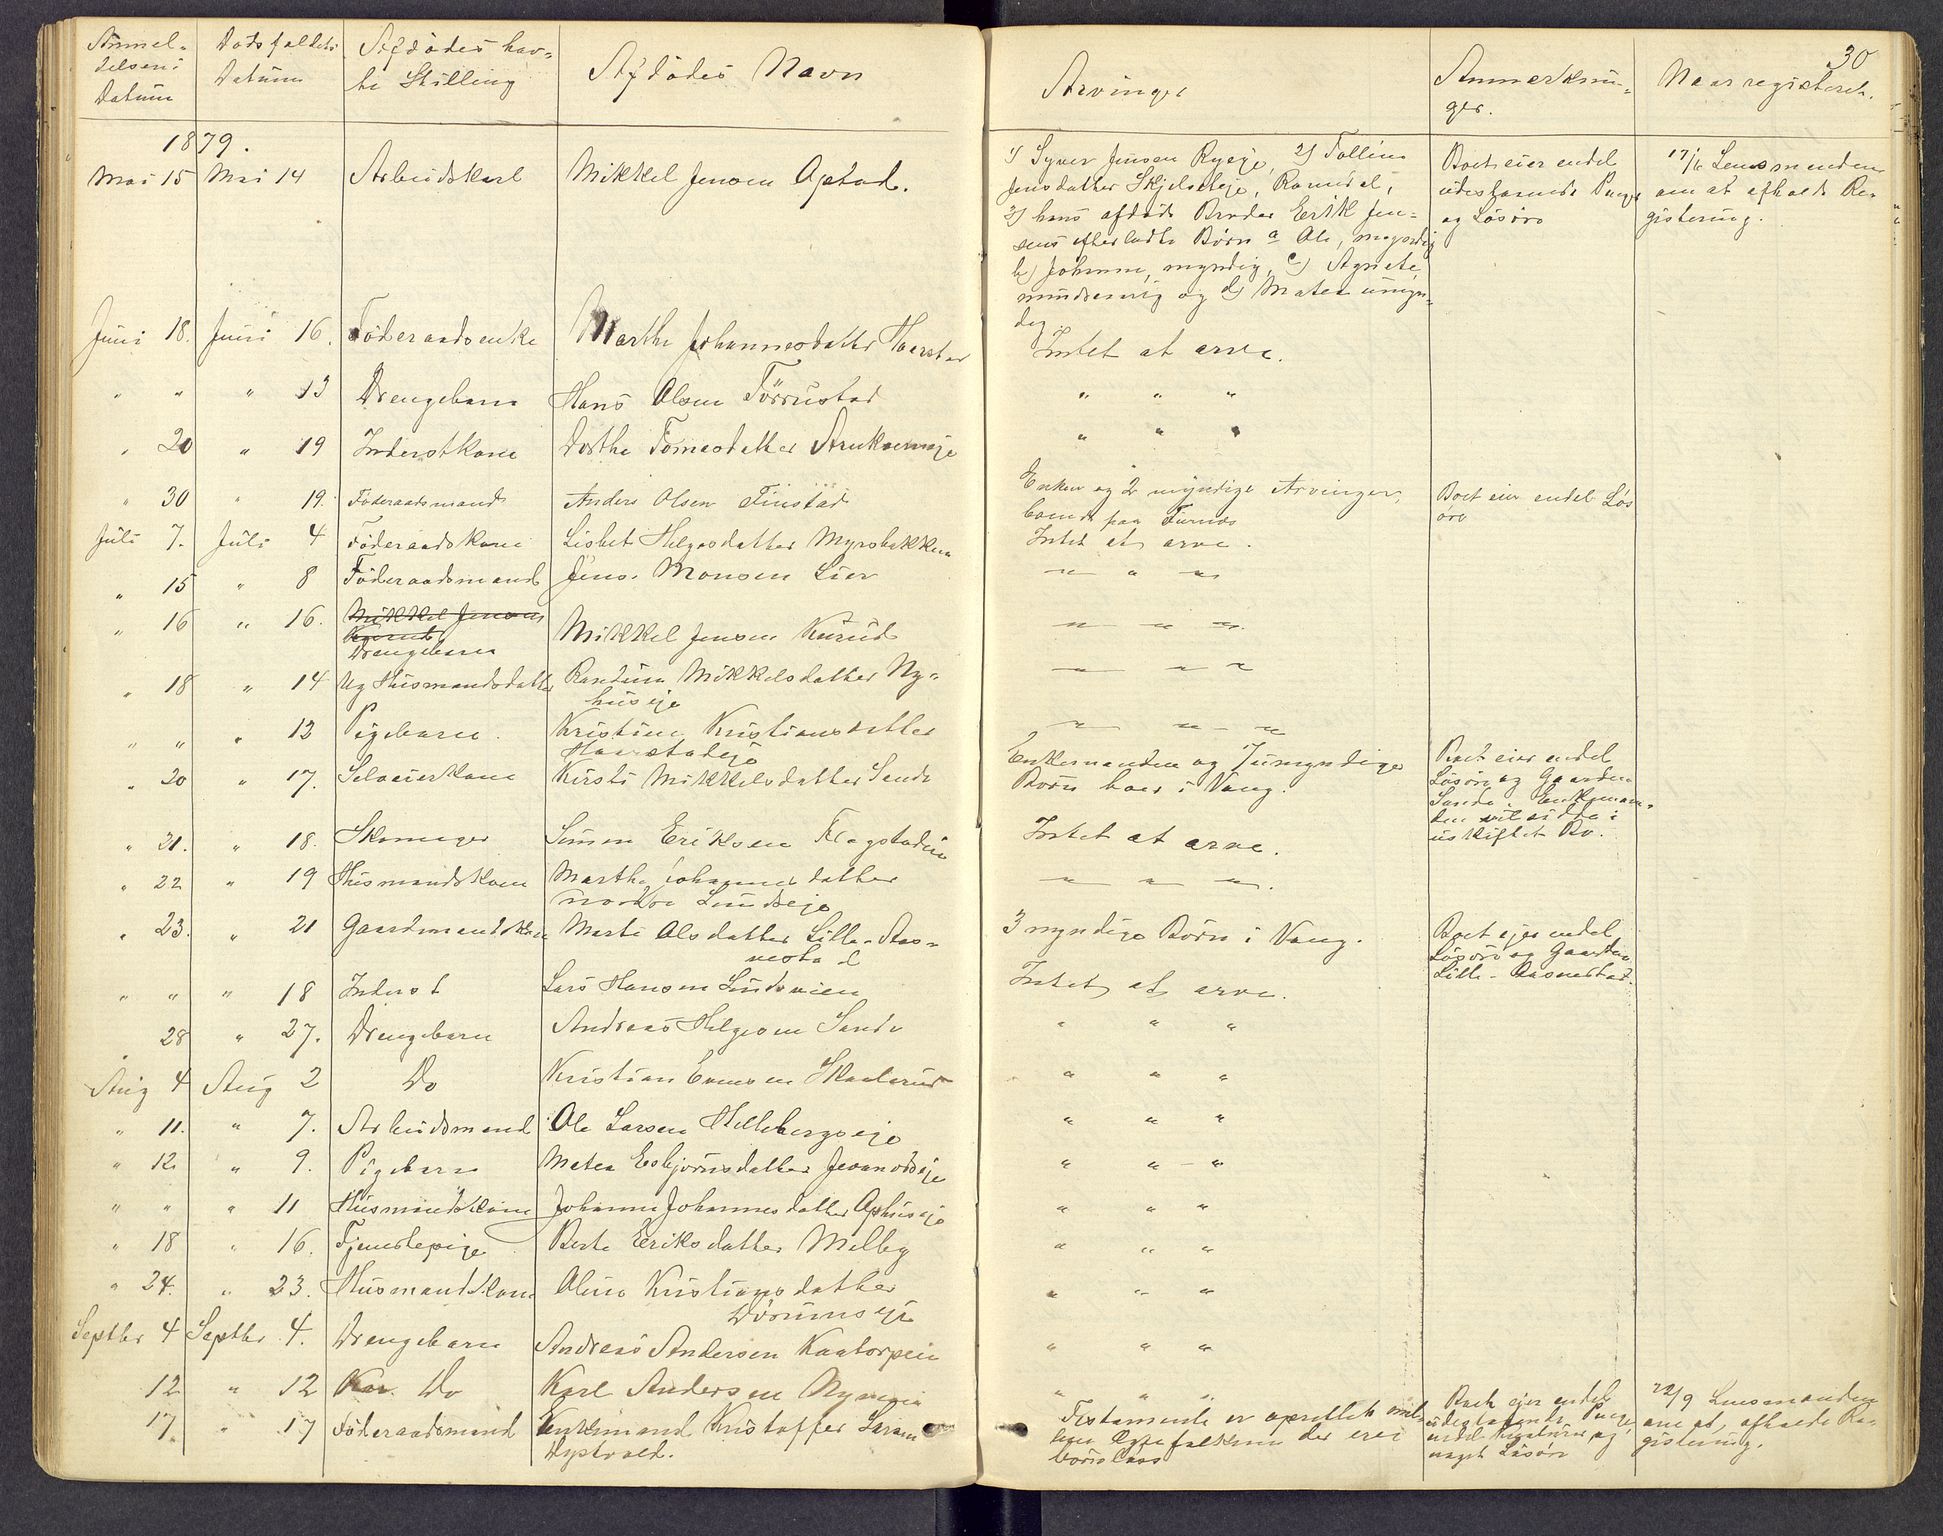 30
Anmel-
delsens
Datum
Dødsfaldets
Datum
Afdødes hav-
te Stilling
Afdødes Navn
Arvinger
Anmerknin-
ger.
Naar registeret.
1879.
Mai 15 Mai 14 Arbeidskarl Mikkel Jensen Opstad.
1) Syver Jensen Ryeje, 2) Golline
Jensdatter Skjelseteje, Romedal,
3) hans afdøde Broder Erik Jen-
sens efterladte Børn a Ole, myndig
b) Johanne, myndig, c) Agnete,
mindreaarig og d) Mathea umyn-
dig.
Boet eier endel
udestaaende Penge
og Løsøre
17/6 Lensmanden
om at afholde Re-
gistering.
Juni 18. Juni 16. Føderaadsenke Marthe Johannesdatter Haarstad Intet at arve.
" " " 13 Drengebarn Hans Olsen Törrustad " " "
" 20 " 19 Inderstkone Dorthe Tomesdatter " " "
" 30 " 19. Føderaadsmand Anders Olsen Finstad
Enken og 2 myndige Arvinger,
boende paa Furnæs
Boet eier endel Løs
øre
Juli 7. Juli 4 Føderaadskone Lisbet Helgesdatter Myrsbakken Intet at arve.
" 15 " 8 Føderaadsmand Jens Monsen Lier " " "
" 16 " 16. Mikkel Jensen
Kurud
Drengebarn Mikkel Jensen Kurud " " "
" 18 " 14 Ug Husmandsdatter Randine Mikkelsdatter Ny-
huseje " " "
" " " 12 Pigebarn. Kristine Kristiansdatter
Haarstadeje " " "
" 20 " 17. Selveierkone Kirsti Mikkelsdatter Sande
Enkemanden og 7 umyndige
Børn boer i Vang.
Boet eier endel
Løsøre og Gaarden
Sande. Enkeman-
den vil sidde i
uskiftet Bo.
" 21. " 18. Skomager Simen Eriksen Flagstadeie Intet at arve.
" 22 " 19 Husmandskone Marthe Johannesdatter
nordre Lundseje " " ".
" 23. " 21 Gaardmandskone Marte Olsdatter Lille-Aas-
nestad
3 myndige Børn i Vang.
Boet ejer endel
Løsøre og Gaarden
Lille-Aasnestad.
" " " 18 Inderst Lars Hansen Lundsveien Intet at arve.
" 28 " 27. Drengebarn Andreas Helgesen Sande " " "
Aug 4 Aug 2 Do Kristian Evensen Skaalerud " " "
" 11. " 7. Arbeidsmand Ole Larsen Hellebergseje " " "
" 12 " 9. Pigebarn Matea Esbjørnsdatter " " - "
" " " 11 Husmandskone Johanne Johannesdatter Ophuseje " " "
" 18 " 16. Tjenestepige Berte Eriksdatter Melby " " "
" 24. " 23. Husmandskone Oline Kristiansdatter
Dørumseje " " "
Septbr 4 Septbr 4. Drengebarn Andreas Andersen Kaatorpeie " " "
12 " 12 Kar. Do Karl Andersen " " "
17. " 17 Føderaadsmand Enkemand Kristoffer Larsen
Dystvold.
Testamente er oprettet mel-
lem Egtefolkene der er
børnløse
Boet ejer endel
udestaaende Penge,
endel Kreaturer og
noget Løsøre
22/9 Lensmanden
om at afholde Re-
gistering.